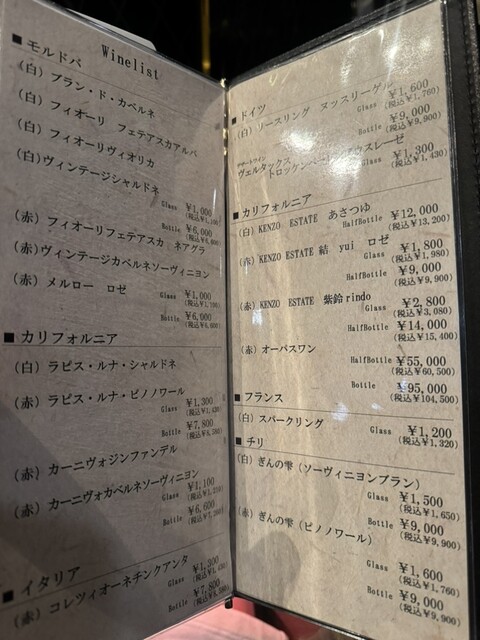 Winelist
■ モルドバ
(白) ブラン・ド・カベルネ
(白) フィオーリ フェテアスカアルバ
(白) フィオーリヴィオリカ
(白)ヴィンテージシャルドネ
Glass ¥1,000
(税込¥1,100)
Bottle ¥6,000
(税込¥6,600)
(赤) フィオーリフェテアスカ ネアグラ
(赤)ヴィンテージカベルネソーヴィニヨン
(赤) メルロー ロゼ
Glass ¥1,000
(税込¥1,100)
Bottle ¥6,000
(税込¥6,600)
■ カリフォルニア
(白) ラピス・ルナ・シャルドネ
(赤) ラピス・ルナ・ピノノワール
Glass ¥1,300
(税込¥1,430)
Bottle ¥7,800
(税込¥8,580)
(赤) カーニヴォジンファンデル
(赤) カーニヴォカベルネソーヴィニヨン
Glass ¥1,100
(税込¥1,210)
Bottle ¥6,600
(税込¥7,260)
■ イタリア
(赤) コレツィオーネチンクアンタ
Glass ¥1,300
(税込¥1,430)
Bottle ¥7,800
(税込¥8,580)
■ ドイツ
(白) リースリング ヌッスリーゲル
Glass ¥1,600
(税込¥1,760)
Bottle ¥9,000
(税込¥9,900)
デザートワイン
ヴェルタックス トロッケンベーレンアウスレーゼ
Glass ¥1,300
(税込¥1,430)
■ カリフォルニア
(白) KENZO ESTATE あさつゆ
HalfBottle ¥12,000
(税込¥13,200)
(赤) KENZO ESTATE 結 yui ロゼ
Glass ¥1,800
(税込¥1,980)
HalfBottle ¥9,000
(税込¥9,900)
(赤) KENZO ESTATE 紫鈴 rindo
Glass ¥2,800
(税込¥3,080)
HalfBottle ¥14,000
(税込¥15,400)
(赤) オーパスワン
HalfBottle ¥55,000
(税込¥60,500)
Bottle ¥95,000
(税込¥104,500)
■ フランス
(白) スパークリング
Glass ¥1,200
(税込¥1,320)
■ チリ
(白) ぎんの雫 (ソーヴィニヨンブラン)
Glass ¥1,500
(税込¥1,650)
Bottle ¥9,000
(税込¥9,900)
(赤) ぎんの雫 (ピノノワール)
Glass ¥1,600
(税込¥1,760)
Bottle ¥9,000
(税込¥9,900)